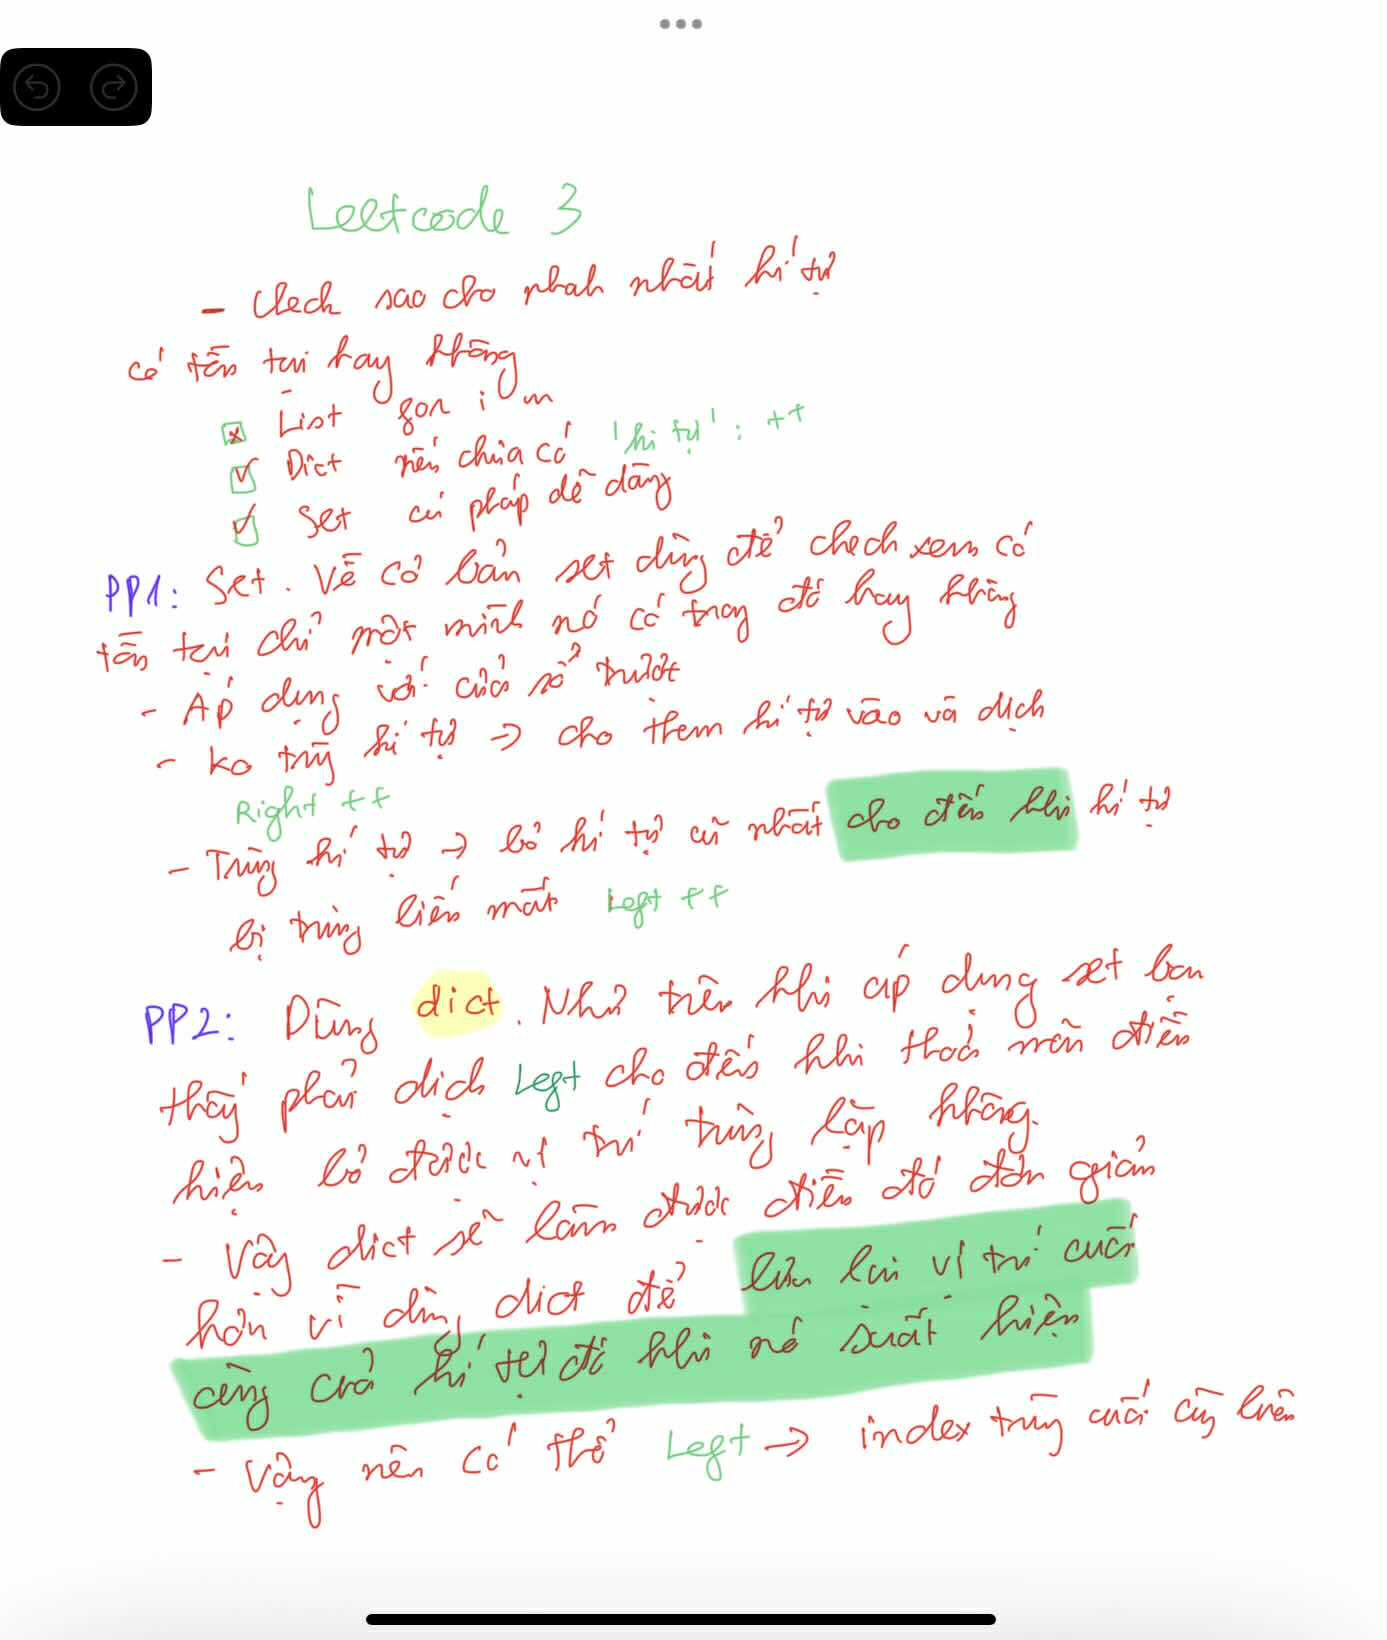 Leetcode 3
- Check sao cho nhanh nhất kí tự
có tồn tại hay không
List for i in
Dict nếu chưa có 'kí tự': ++
Set cú pháp dễ dàng
PP1: Set. Về cơ bản set dùng để check xem có
tồn tại chỉ một mình nó có trong đó hay không
- Áp dụng với cửa sổ trượt
- ko trùng kí tự → cho thêm kí tự vào và dịch
Right ++
- Trùng kí tự → bỏ kí tự cũ nhất cho đến khi kí tự
bị trùng biến mất Left ++
PP2: Dùng dict. Như trên khi áp dụng set ban
thấy phải dịch Left cho đến khi thoả mãn điều
kiện bỏ được vị trí trùng lặp không.
- Vậy dict sẽ làm được điều đó đơn giản
hơn vì dùng dict để lưu lại vị trí cuối
cùng của kí tự đó khi nó xuất hiện
- Vậy nên có thể Left → index trùng cuối cùng luôn